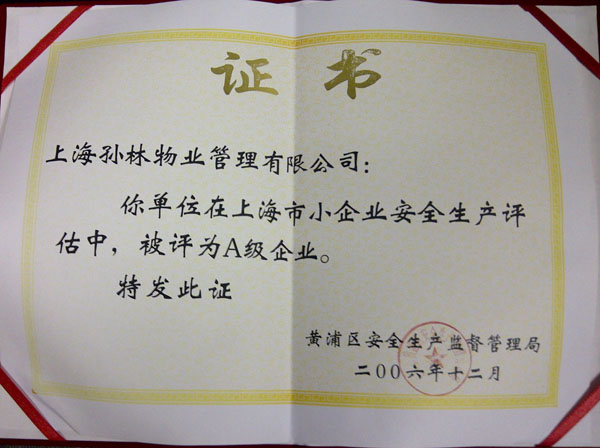 证书
上海孙林物业管理有限公司：
你单位在上海市小企业安全生产评
估中，被评为A级企业。
特发此证
黄浦区安全生产监督管理局
二〇〇六年十二月